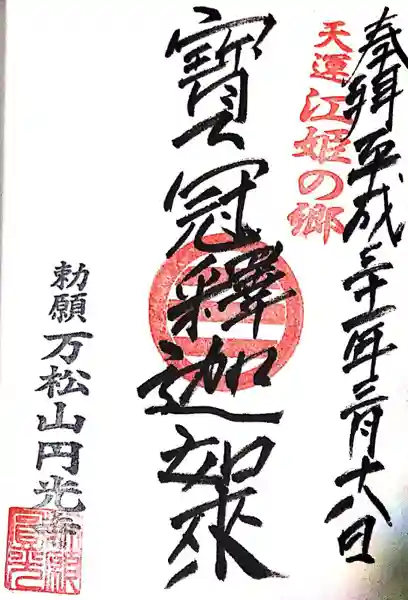 奉拝平成三十一年三月十六日
天運江姫の郷
寳冠釋迦如来
勅願万松山円光寺